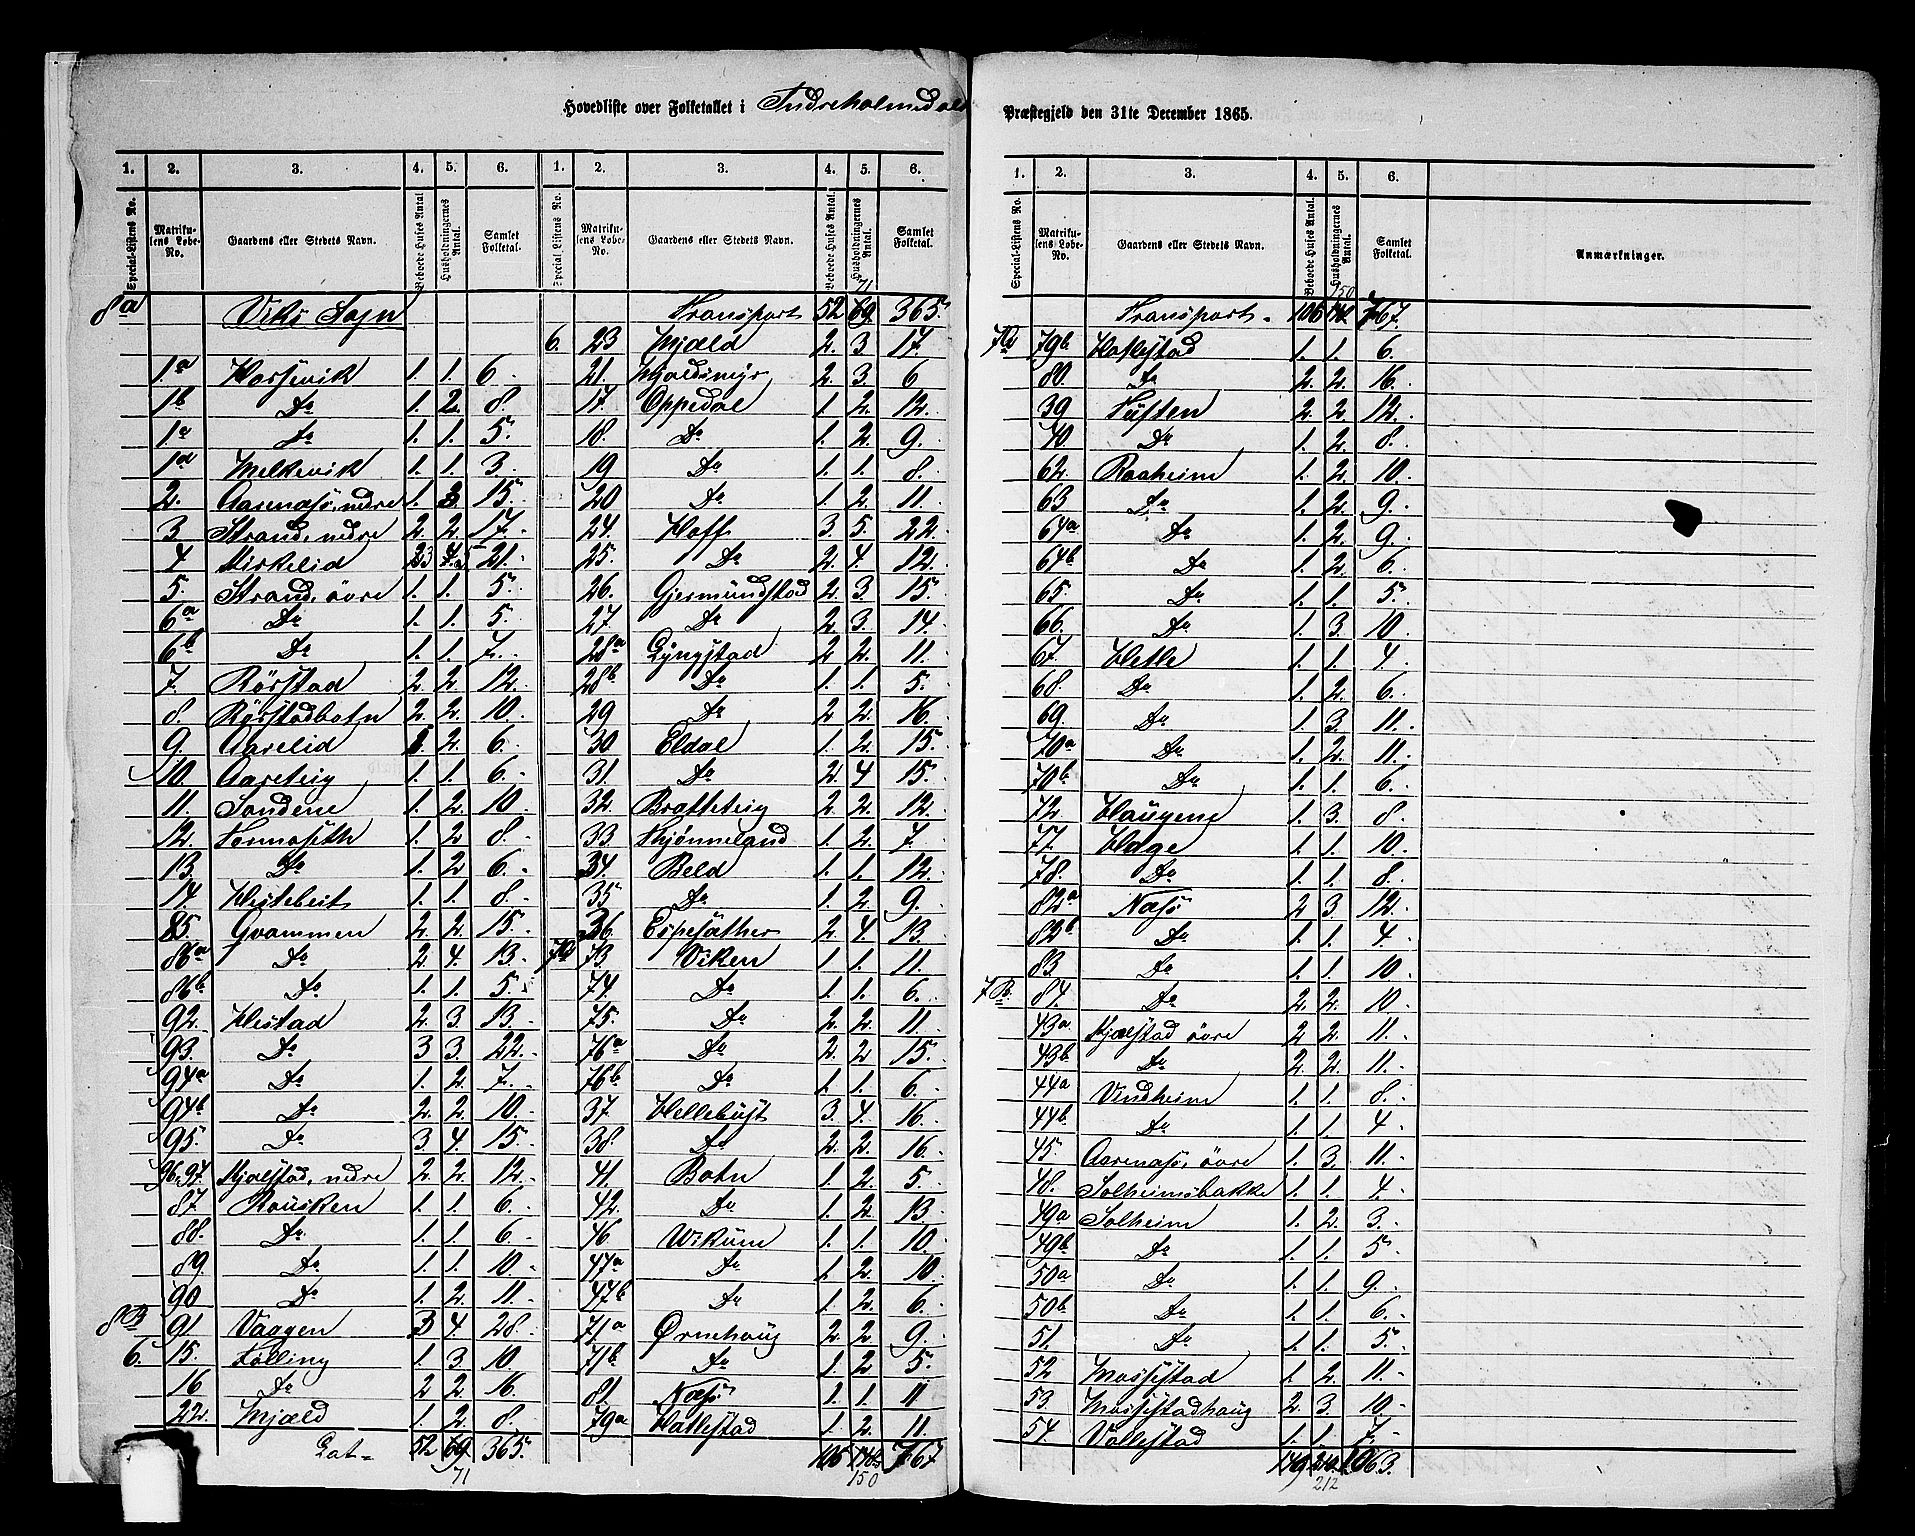 Hovedliste over Folketallet i Indreholmedal Præstegjeld den 31te December 1865.
1. 2. 3. 4. 5. 6. 1. 2. 3. 4. 5. 6.
Special-Listens No. Matrikulens Løbe-No. Gaardens eller Stedets Navn. Beboede Huses Antal Husholdningernes Antal. Samlet Folketal. Special-Listens No. Matrikulens Løbe-No. Gaardens eller Stedets Navn. Beboede Huses Antal. Husholdningernes Antal. Samlet Folketal.
8a Viks Sogn
1a Hossevik 1. 1. 6.
1b Do 1. 2. 8.
1a Do 1. 1. 5.
1d Melkevik 1. 1. 3.
2. Aarenæs, nedre 1. 15.
3. Strand, nedre 2. 2. 17.
4 Mirkelid 3 5 21.
5. Strand, øvre 1. 1. 5.
6a Do 1. 1. 5.
6b Do 1. 1. 7.
7. Rørstad 2. 2. 12.
8. Rørstadbotn 2. 2. 10.
9. Aarelid 1. 2. 6.
10. Aarteig 1. 1. 6.
11. Sandene 1. 2. 10.
12. Tornæseth 1. 2 8.
13. Do 1. 2 6.
14. Hestebeit 1. 1. 8.
85. Gvammen 2. 2. 15.
86a Do 2. 4. 13.
86b Do 1. 1. 5.
92. Hestad 2. 3. 13.
93. Do 3 3. 22.
94a Do 1. 2. 7.
94b Do 2. 2. 10.
95. Do 3 4. 15.
96, 97. Kjælstad, nedre 2. 2. 12.
87. Rousken 1. 1. 6.
88. Do 1. 1. 6.
89. Do 1. 1. 10.
90 Do 1. 2. 11.
8B 91 Vaagen 3 4. 28.
6. 15. Følling 1. 3. 10.
16 Do 2 2. 16.
22. Mjæld 1. 2. 8.
Lat. 52 69. 365.
71
71
Transport 52 69 365
6. 23 Mjæld 2. 3. 17.
21. Mjældsmyr 2. 3. 6
17. Oppedal 1. 2. 12.
18. Do 1. 2. 9.
19 Do 1. 1. 8.
20 Do 1. 2. 11.
24. Hoff 3. 5. 22.
25. Do 2. 4. 12.
26. Gjermundstad 2. 3. 15.
27. Do 2. 3. 14.
28a Lyngstad 2 2. 11.
28b Do 1. 1. 5.
29 Do 2 2. 16.
30 Eldal 1. 2. 15.
31. Do 2. 4 15.
32. Bratteteig 2. 2. 12.
33. Kjønneland 1. 2. 7.
34. Beld 1. 1. 12.
35 Do 1. 2. 9.
36. Espesæther 2. 4. 13.
7a 73 Viken 1. 1. 11.
74. Do 1. 1. 6.
75. Do 2. 2. 11.
76a Do 2. 2 15.
76b Do 1. 1. 6.
37. Hellebust 3. 4. 16.
38. Do 2. 2. 16
41. Botn 1. 2. 5.
42. Do 1. 2. 13.
46 Wikum 1. 1. 10.
47a Do 1. 2. 10
47b Do 1. 2. 6.
71a Ørnehaug 2. 2. 9.
71b Do 1. 2. 5.
81. Næss 1. 1. 11
79a Hattestad 1. 2. 11.
106 148 767
150
1. 2. 3. 4. 5. 6.
Special-Listens No. Matrikulens Løbe-No. Gaardens eller Stedets Navn. Beboede Huses Antal. Husholdningernes Antal. Samlet Folketal. Anmærkninger.
150
Transport 106 148 767.
7a 79b Hattestad 1. 1. 6.
80. Do 2. 2. 16.
39 Tüften 2. 2. 12.
40. Do 1. 2. 8.
62. Raaheim 1. 2. 10.
63 Do 1. 2. 9.
64a Do 1. 2. 9.
64b Do 1. 2. 6.
65. Do 1. 1. 5.
66. Do 1. 3. 10.
67. Hetle 1. 1. 4.
68. Do 1. 2. 6.
69. Do 1. 3. 11.
70a Do 1. 2. 11.
70b Do 1. 1. 6.
72. Haugene 1. 3. 8.
77. Hage 1. 1. 10.
78. Do 1. 1. 8.
82a Næss 2 3. 12.
82b Do 1. 1. 4.
83 Do 1. 1. 10
7B. 84. Do 2. 2. 10.
43a Kjælstad øvre 2 2. 11.
43b Do 2. 2. 11.
44a Vindheim 1. 1. 8.
44b Do 1. 1. 4
45. Aarenæs, øvre 1. 3. 11.
48. Solheimsbakke 1. 1. 4.
49a Solheim 1. 2. 3.
49b Do 1. 1. 5
50a Do 1. 1. 9.
50b Do 1. 1. 6.
51. Do 1. 1. 5.
52 Mossestad 1. 2. 11.
53 Mossestadhaug 2. 3. 10
54. Vallestad 1. 1. 7.
149 210 1063.
212